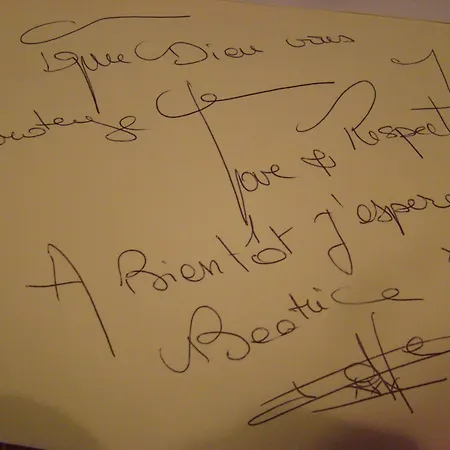 que Dieu vous
Love & Respect
A Bientôt j'espère
Beatrice